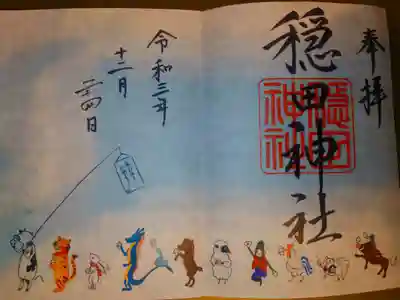 奉拝
穏田神社
穏田
神社
令和三年
十二月
二十四日